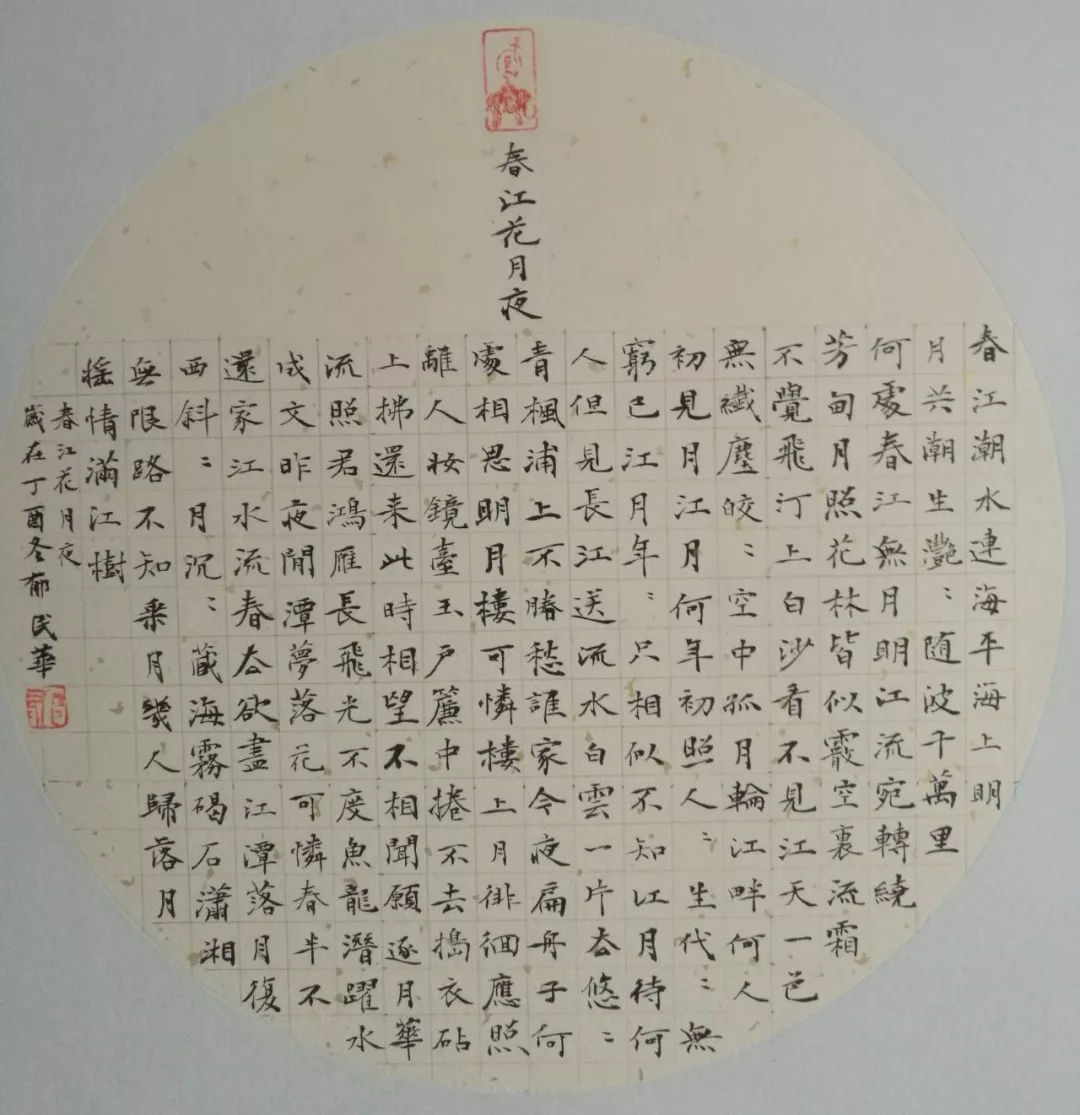 春江花月夜
春江潮水連海平海上明
月共潮生灧〻随波千萬里
何處春江無月明江流宛轉繞
芳甸月照花林皆似霰空裏流霜
不覺飛汀上白沙看不見江天一色
無纖塵皎〻空中孤月輪江畔何人
初見月江月何年初照人〻生代〻無
窮已江月年〻只相似不知江月待何
人但見長江送流水白雲一片去悠〻
青楓浦上不勝愁誰家今夜扁舟子何
處相思明月樓可憐樓上月徘徊應照
離人妝鏡臺玉户簾中捲不去搗衣砧
上拂還来此時相望不相聞願逐月華
流照君鴻雁長飛光不度魚龍潛躍水
成文昨夜閒潭夢落花可憐春半不
還家江水流春去欲盡江潭落月復
西斜〻月沉〻藏海霧碣石瀟湘
無限路不知乘月幾人歸落月
摇情滿江樹
春江花月夜
歲在丁酉冬郁民華